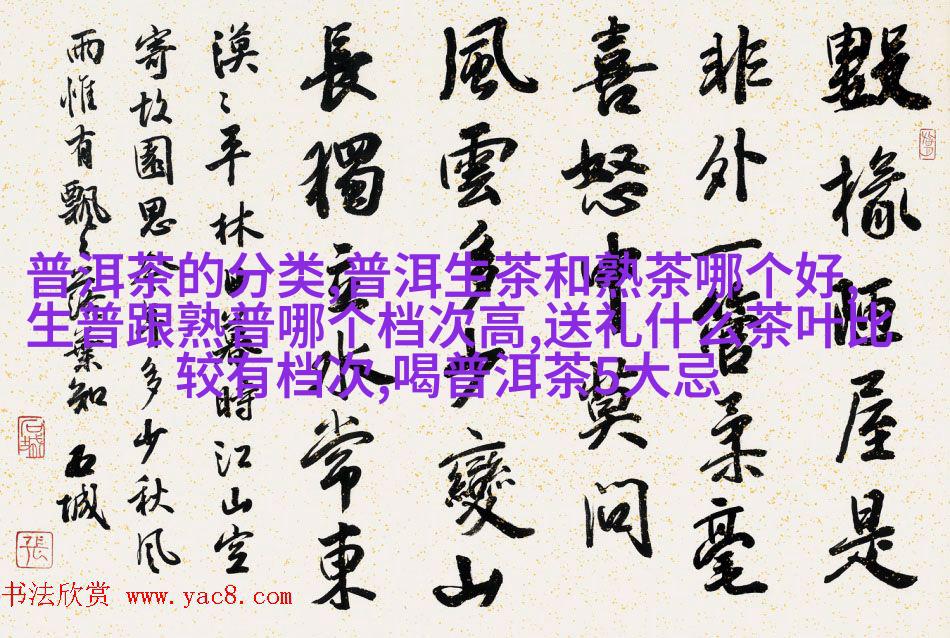 數椽陋屋是
非外一管柔毫
喜怒中莫問
風雲多少變山
長獨立水常東
漠〻平林日暮時江山空
寄故園思多少秋風
雨惟有飄〻落葉知 石城
石城
張
普洱茶的分类,普洱生茶和熟茶哪个好,
生普跟熟普哪个档次高,送礼什么茶叶比
较有档次,喝普洱茶5大忌
书法欣赏 www.yac8.com